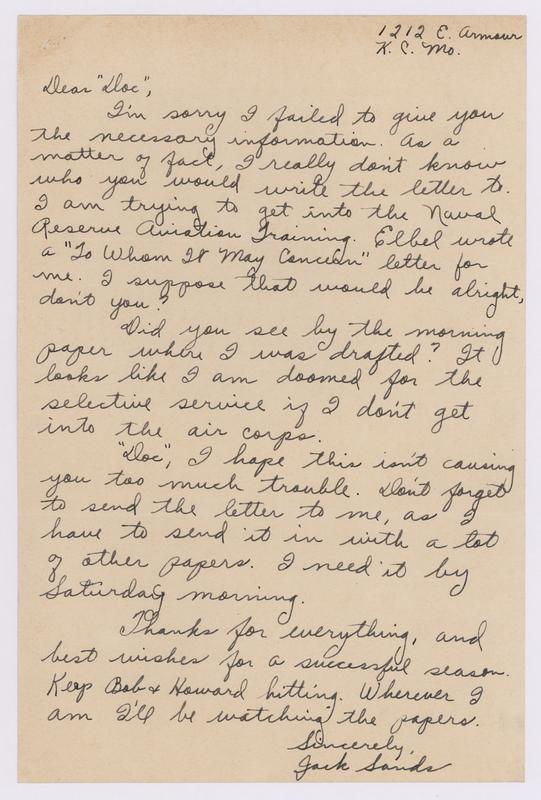 1212 E. Armour
K. C. Mo.
Dear "Doc",
I'm sorry I failed to give you
the necessary information. As a
matter of fact, I really don't know
who you would write the letter to.
I am trying to get into the Naval
Reserve Aviation Training. Elbel wrote
a "To Whom It May Concern" letter for
me. I suppose that would be alright,
don't you?
Did you see by the morning
paper where I was drafted? It
looks like I am doomed for the
selective service if I don't get
into the air corps.
"Doc", I hope this isn't causing
you too much trouble. Don't forget
to send the letter to me, as I
have to send it in with a lot
of other papers. I need it by
Saturday morning.
Thanks for everything, and
best wishes for a successful season.
Keep Bob & Howard hitting. Wherever I
am I'll be watching the papers.
Sincerely,
Jack Sands